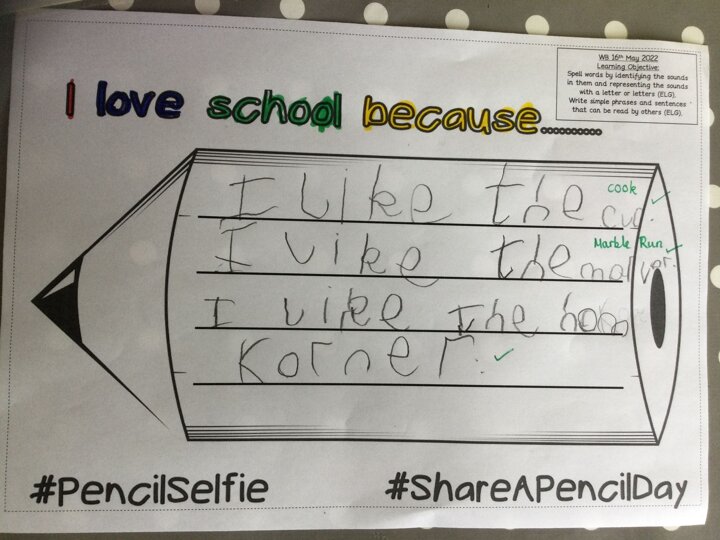 WB 16th May 2022
Learning Objective:
Spell words by identifying the sounds
in them and representing the sounds
with a letter or letters (ELG).
Write simple phrases and sentences
that can be read by others (ELG).
I love school because...........
I like the cook
I like the Marble Run
I like the hom
korner.
#PencilSelfie
#ShareAPencilDay